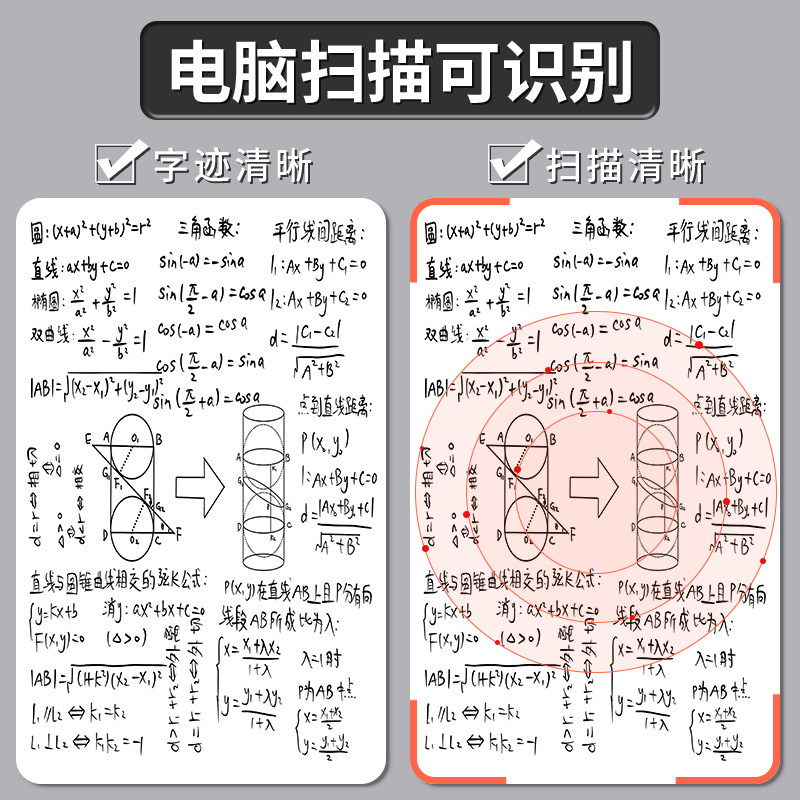 电脑扫描可识别
字迹清晰
圆:(x+a)²+(y+b)²=r²
直线:ax+by+c=0
椭圆:x²/a²+y²/b²=1
双曲线:x²/a²-y²/b²=1
|AB|=√(x₂-x₁)²+(y₂-y₁)²
三角函数:
sin(-a)=-sina
sin(π/2-a)=cosa
cos(-a)=cosa
cos(π/2-a)=sina
sin(π/2+a)=cosa
平行线间距离:
l₁:Ax+By+C₁=0
l₂:Ax+By+C₂=0
d=|C₁-C₂|/√A²+B²
点到直线距离:
P(x,y₀)
l:Ax+By+C=0
d=|Ax₀+By₀+C|/√A²+B²
d=r⇔相切
⇔Δ=0
d<r⇔相交
⇔Δ>0
E A O₁ B
G₁ F₁
F₂ G₂
D O₂ C F
A B
G₁
D C
直线与圆锥曲线相交的弦长公式:
{y=kx+b
F(x,y)=0
消y:ax²+bx+c=0
(Δ>0)
|AB|=√(1+k²)(x₂-x₁)²
l₁∥l₂⇔k₁=k₂
l₁⊥l₂⇔k₁k₂=-1
d>r₁+r₂⇔外离
d=r₁+r₂⇔外切
P(x,y)在直线AB上且P分有向
线段AB所成比为λ:
{x=x₁+λx₂/1+λ
y=y₁+λy₂/1+λ
λ=1时
P为AB中点
{x=x₁+x₂/2
y=y₁+y₂/2
扫描清晰
圆:(x+a)²+(y+b)²=r²
直线:ax+by+c=0
椭圆:x²/a²+y²/b²=1
双曲线:x²/a²-y²/b²=1
|AB|=√(x₂-x₁)²+(y₂-y₁)²
三角函数:
sin(-a)=-sina
sin(π/2-a)=cosa
cos(-a)=cosa
cos(π/2-a)=sina
sin(π/2+a)=cosa
平行线间距离:
l₁:Ax+By+C₁=0
l₂:Ax+By+C₂=0
d=|C₁-C₂|/√A²+B²
点到直线距离:
P(x,y₀)
l:Ax+By+C=0
d=|Ax₀+By₀+C|/√A²+B²
d=r⇔相切
⇔Δ=0
d<r⇔相交
⇔Δ>0
E A O₁ B
G₁ F₁
F₂ G₂
D O₂ C F
A B
G₁
D C
直线与圆锥曲线相交的弦长公式:
{y=kx+b
F(x,y)=0
消y:ax²+bx+c=0
(Δ>0)
|AB|=√(1+k²)(x₂-x₁)²
l₁∥l₂⇔k₁=k₂
l₁⊥l₂⇔k₁k₂=-1
d>r₁+r₂⇔外离
d=r₁+r₂⇔外切
P(x,y)在直线AB上且P分有向
线段AB所成比为λ:
{x=x₁+λx₂/1+λ
y=y₁+λy₂/1+λ
λ=1时
P为AB中点
{x=x₁+x₂/2
y=y₁+y₂/2